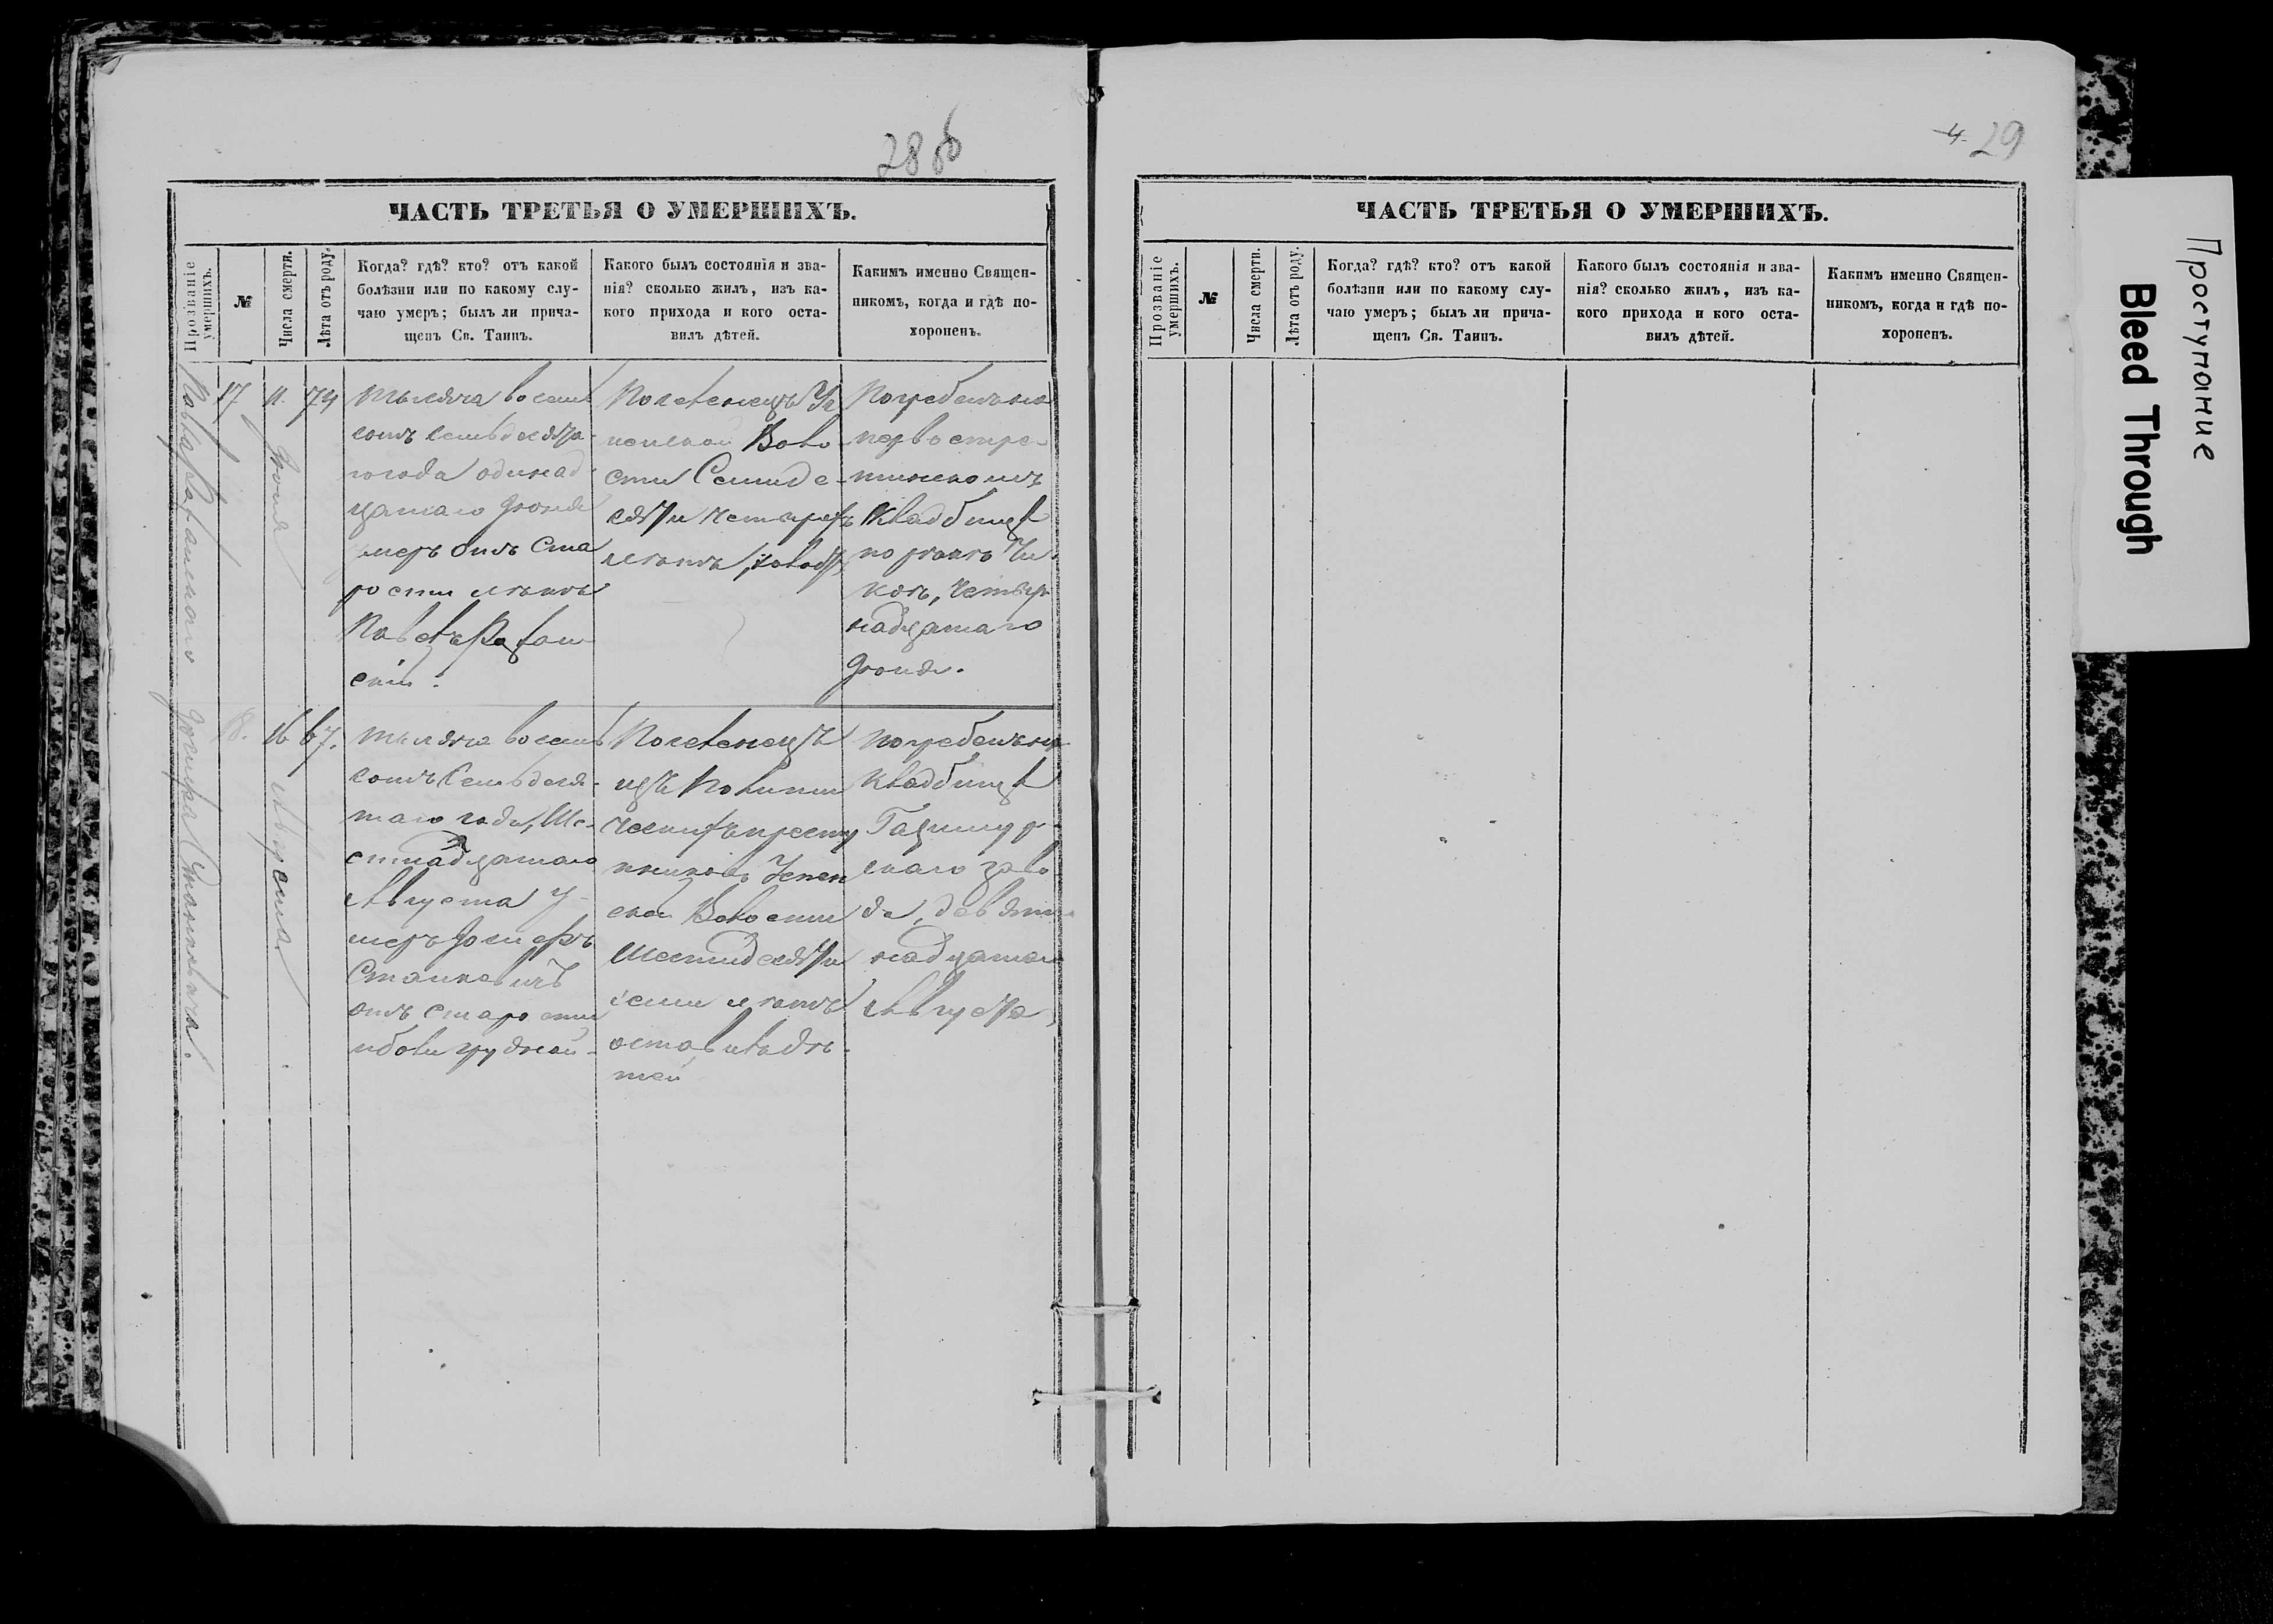 28 об
ЧАСТЬ ТРЕТЬЯ О УМЕРШИХЪ.
Прозваніе
умершихъ.
№
Числа смерти.
Лѣта отъ роду.
Когда? гдѣ? кто? отъ какой
болѣзни или по какому слу-
чаю умеръ; былъ ли прича-
щенъ Св. Таинъ.
Какого былъ состоянія и зва-
нія? сколько жилъ, изъ ка-
кого прихода и кого оста-
вилъ дѣтей.
Какимъ именно Священ-
никомъ, когда и гдѣ по-
хороненъ.
17
11.
Іюня
74
тысяча восемь
сотъ семьдесята-
го года одинад
цатаго Іюня
умеръ отъ Ста
рости лѣтъ
Павелъ
скій.
Поселенецъ
Воло-
сти Семиде-
сяти четырехъ
лѣтъ,
Погребенъ на
кладбищѣ
четыр
надцатаго
Іюня.
18.
16
Августа
67.
тысяча восемь
сотъ Семьдеся-
таго года, Ше-
стнадцатаго
Августа у-
меръ
Станкевичъ
отъ старости
и боли грудной
Поселенецъ
изъ Полити
ческихъ престу
пниковъ
ской Волости
Шестидесяти
семи лѣтъ
оставилъ дѣ-
тей
погребенъ на
кладбищѣ
Газимур-
скаго заво
да, девятна
надцатаго
Августа
4. 29
ЧАСТЬ ТРЕТЬЯ О УМЕРШИХЪ.
Прозваніе
умершихъ.
№
Числа смерти.
Лѣта отъ роду.
Когда? гдѣ? кто? отъ какой
болѣзни или по какому слу-
чаю умеръ; былъ ли прича-
щенъ Св. Таинъ.
Какого былъ состоянія и зва-
нія? сколько жилъ, изъ ка-
кого прихода и кого оста-
вилъ дѣтей.
Какимъ именно Священ-
никомъ, когда и гдѣ по-
хороненъ.
Проступание
Bleed Through